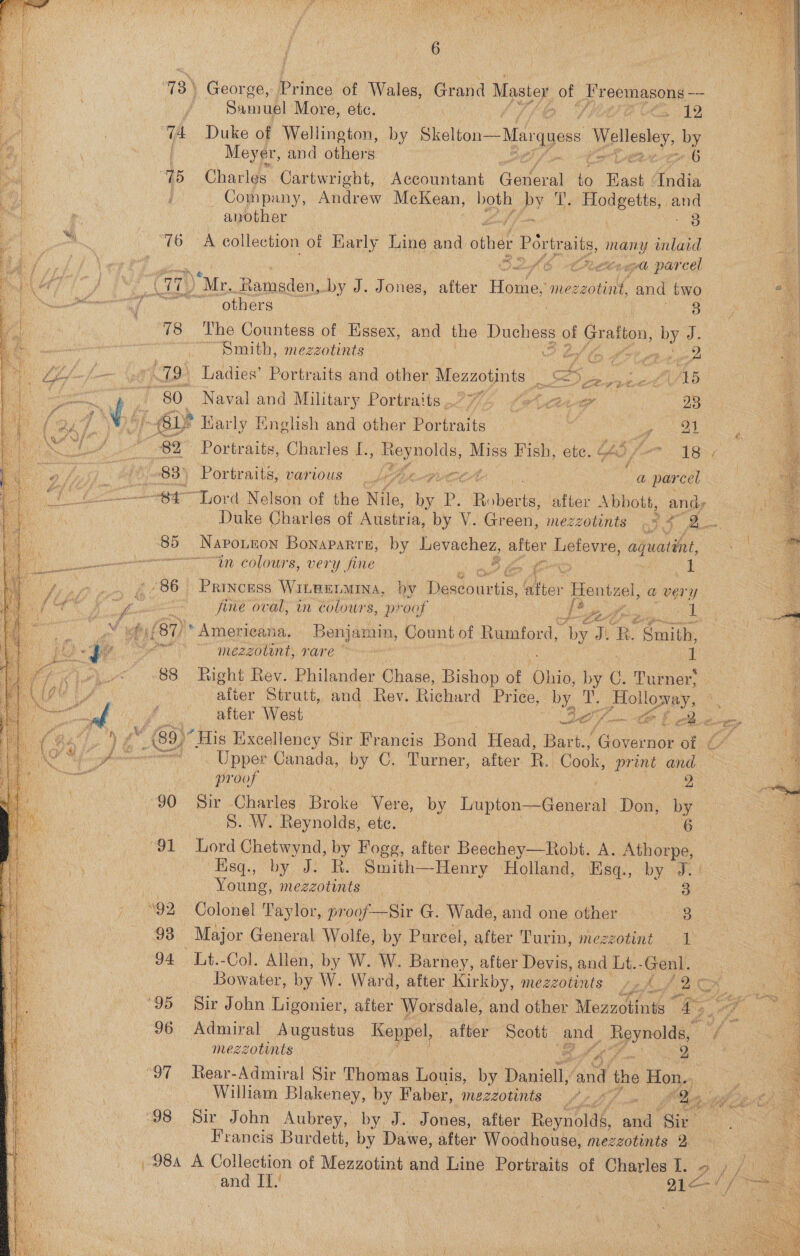 6
73 George, Prince of Wales, Grand Master of Freemasons —
Samuel More, etc. 12
74 Duke of Wellington, by Skelton—Marquess Wellesley, by
Meyer, and others 6
75 Charles Cartwright, Accountant General to East India
Company, Andrew McKean, both by T. Hodgetts, and
another 3
76 A collection of Early Line and other Portraits, many inlaid
a parcel
77 Mr. Ramsden, by J. Jones, after Home, mezzotint, and two
others 3
78 The Countess of Essex, and the Duchess of Grafton, by J.
Smith, mezzotints 2
79 Ladies' Portraits and other Mezzotints 15
80 Naval and Military Portraits 23
81 Early English and other Portraits 21
82 Portraits, Charles I., Reynolds, Miss Fish, etc. 18
83 Portraits, various a parcel
84 Lord Nelson of the Nile, by P. Roberts, after Abbott, and
Duke Charles of Austria, by V. Green, mezzotints 2
85 Napoleon Bonaparte, by Levachez, after Lefevre, aquatint,
in colours, very fine 1
86 Princess Wilhelmina, by Descourtis, after Hentzel, a very
fine oval, in colours, proof 1
87 Americana. Benjamin, Count of Rumford, by J. R. Smith,
mezzotint, rare 1
88 Right Rev. Philander Chase, Bishop of Ohio, by C. Turner,
after Strutt, and Rev. Richard Price, by T. Holloway,
after West 2
89 His Excellency Sir Francis Bond Head, Bart., Governor of
Upper Canada, by C. Turner, after R. Cook, print and
proof 2
90 Sir Charles Broke Vere, by Lupton—General Don, by
S. W. Reynolds, etc. 6
91 Lord Chetwynd, by Fogg, after Beechey—Robt. A. Athorpe,
Esq., by J. R. Smith—Henry Holland, Esq., by J.
Young, mezzotints 3
92 Colonel Taylor, proof—Sir G. Wade, and one other 3
93 Major General Wolfe, by Purcel, after Turin, mezzotint 1
94 Lt.-Col. Allen, by W. W. Barney, after Devis, and Lt.-Genl.
Bowater, by W. Ward, after Kirkby, mezzotints 2
95 Sir John Ligonier, after Worsdale, and other Mezzotints 4
96 Admiral Augustus Keppel, after Scott and Reynolds,
mezzotints 2
97 Rear-Admiral Sir Thomas Louis, by Daniell, and the Hon.
William Blakeney, by Faber, mezzotints 2
98 Sir John Aubrey, by J. Jones, after Reynolds, and Sir
Francis Burdett, by Dawe, after Woodhouse, mezzotints 2
98A A Collection of Mezzotint and Line Portraits of Charles I.
and II. 21